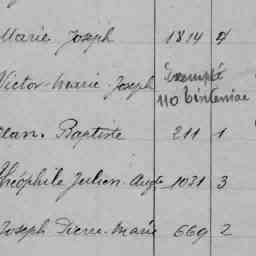 Marie Joseph 1814 4
Victor-Marie-Joseph Exempté
110
Jean Baptiste 211 1
Théophile Julien-Augte 1031 3
Joseph Pierre-Marie 669 2